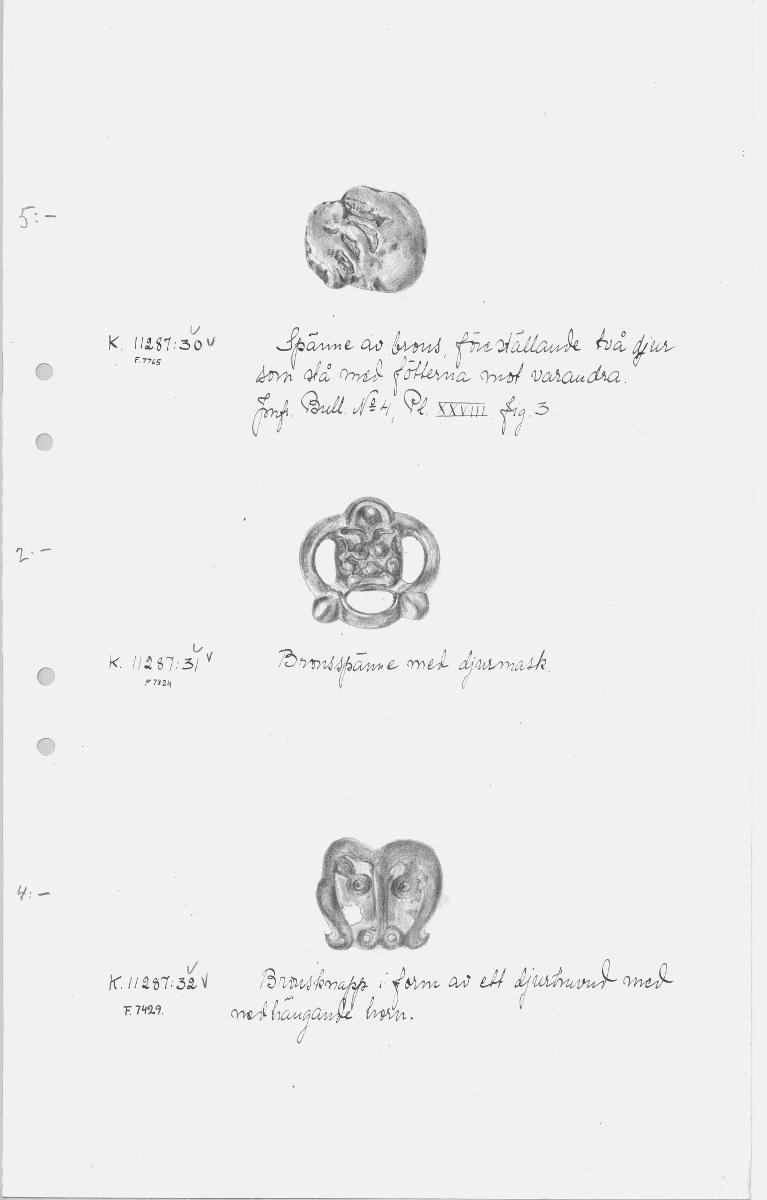 5:-
K. 11287:30 v Spänne av brons, föreställande två djur
F. 7765
som stå med fötterna mot varandra.
Jmfr. Bull. No 4, Pl. XXVIII fig. 3.
2:-
K. 11287:31 v Bronsspänne med djurmask.
F 7824
4:-
K. 11287:32 v Bronsknapp i form av ett djurhuvud med
F. 7429.
nedhängande horn.